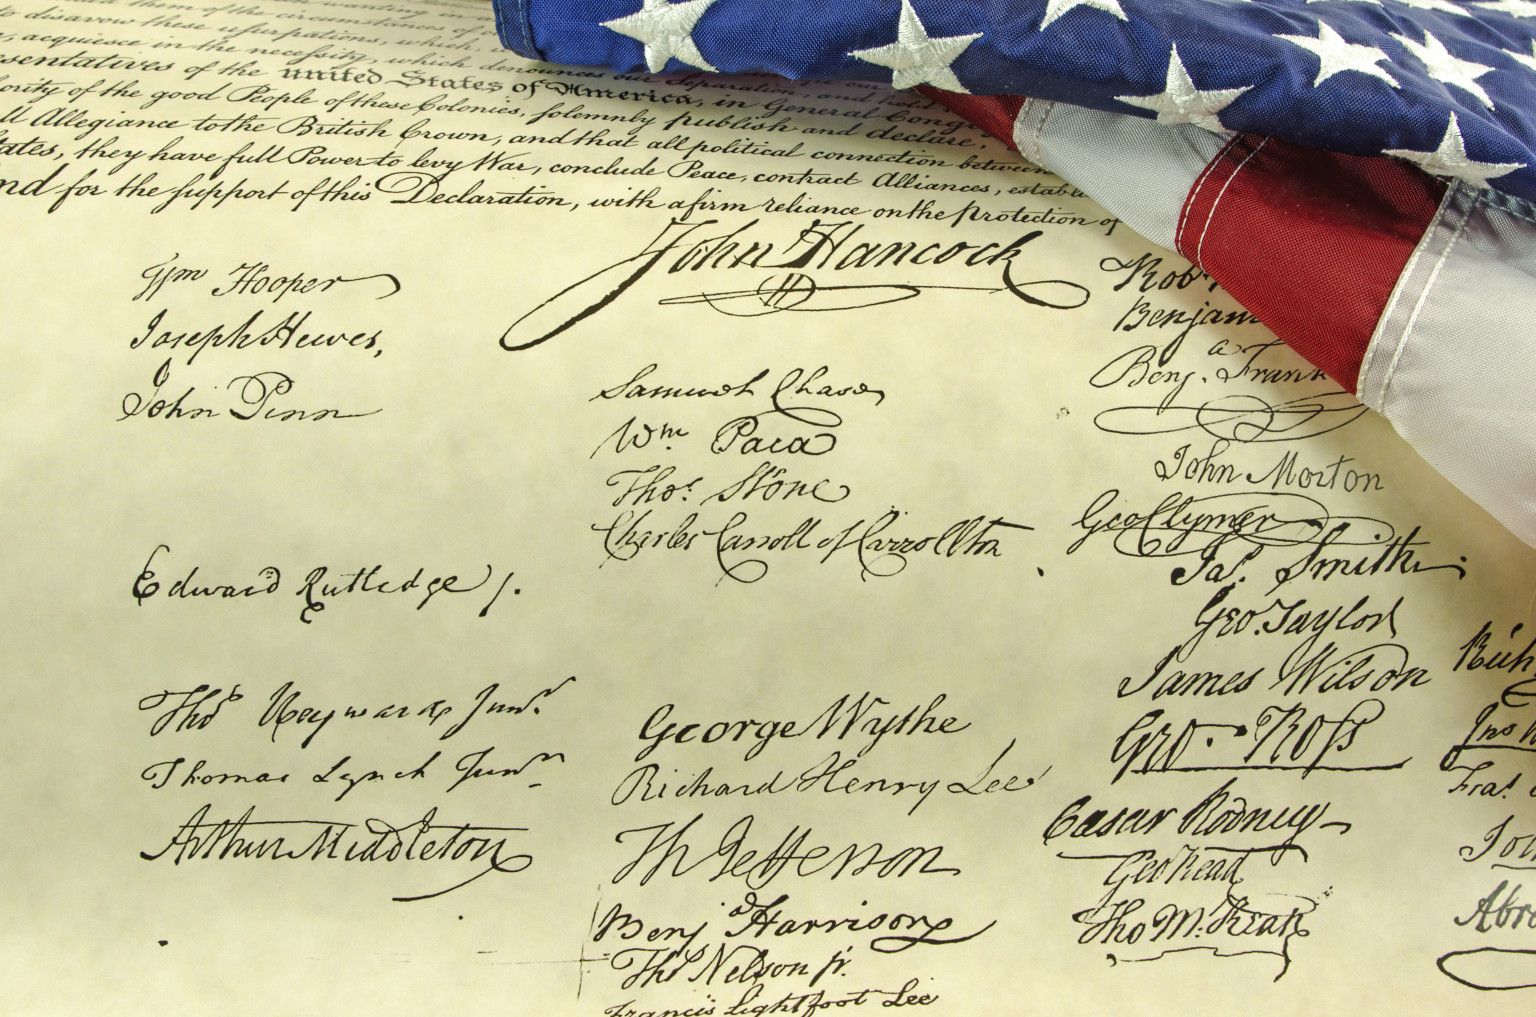 to disavow these usurpations, which,
acquiesce in the necessity, which denounces our Separation, and hold
sentatives of the united States of America, in General Cong
ority of the good People of these Colonies, solemnly publish and declare,
ll Allegiance to the British Crown, and that all political connection between
tates, they have full Power to levy War, conclude Peace, contract Alliances, establ
nd for the support of this Declaration, with a firm reliance on the protection of
John Hancock
Wm Hooper
Joseph Hewes,
John Penn
Edward Rutledge /.
Thos Heyward Junr.
Thomas Lynch Junr.
Arthur Middleton
Samuel Chase
Wm. Paca
Thos. Stone
Charles Carroll of Carrollton
George Wythe
Richard Henry Lee
Th Jefferson
Benj Harrison
Thos Nelson jr.
Francis Lightfoot Lee
Rob
Benjam
Benja. Frank
John Morton
Geo Clymer
Jas. Smith.
Geo. Taylor
James Wilson
Geo. Ross
Caesar Rodney
Geo Read
Tho M:Kean
Rich
Jns
Fras.
Joh
Abra